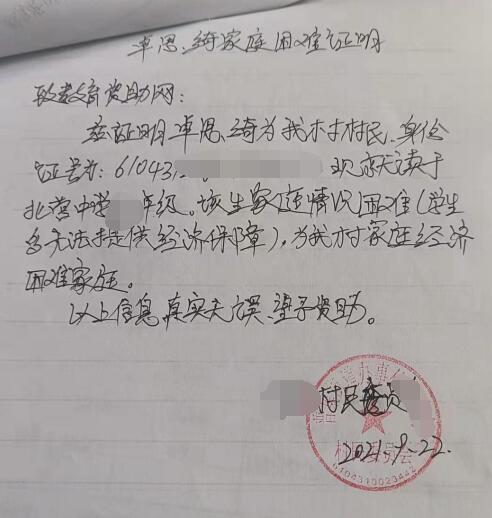 卓思绮家庭困难证明
致教育资助网:
兹证明卓思绮为我村村民,身份
证号为:61043 现就读于
北营中学 年级。该生家庭情况困难(学生
爸无法提供经济保障),为我村家庭经济
困难家庭。
以上信息真实无误,望予资助。
办事
村民委员
2021-9-22.
村民委员会
6104310023442